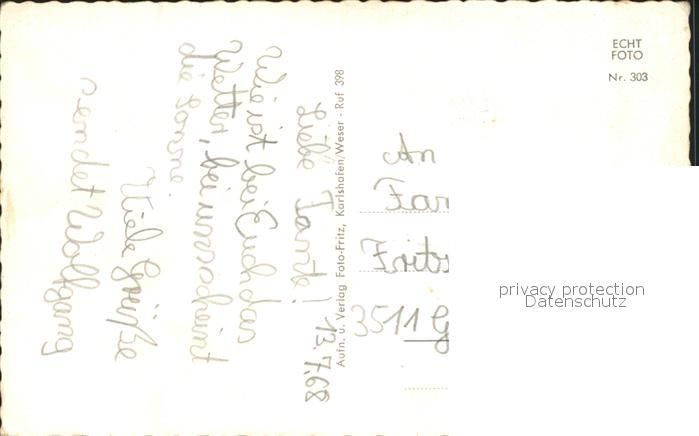 Liebe Tante! 13.7.68
Wie ist bei Euch das
Wetter, bei uns scheint
die Sonne.
Viele Grüße
sendet Wolfgang
Aufn. u. Verlag Foto-Fritz, Karlshofen/Weser - Ruf 398
ECHT
FOTO
Nr. 303
An
Fam
Fritz
3511 G
privacy protection
Datenschutz